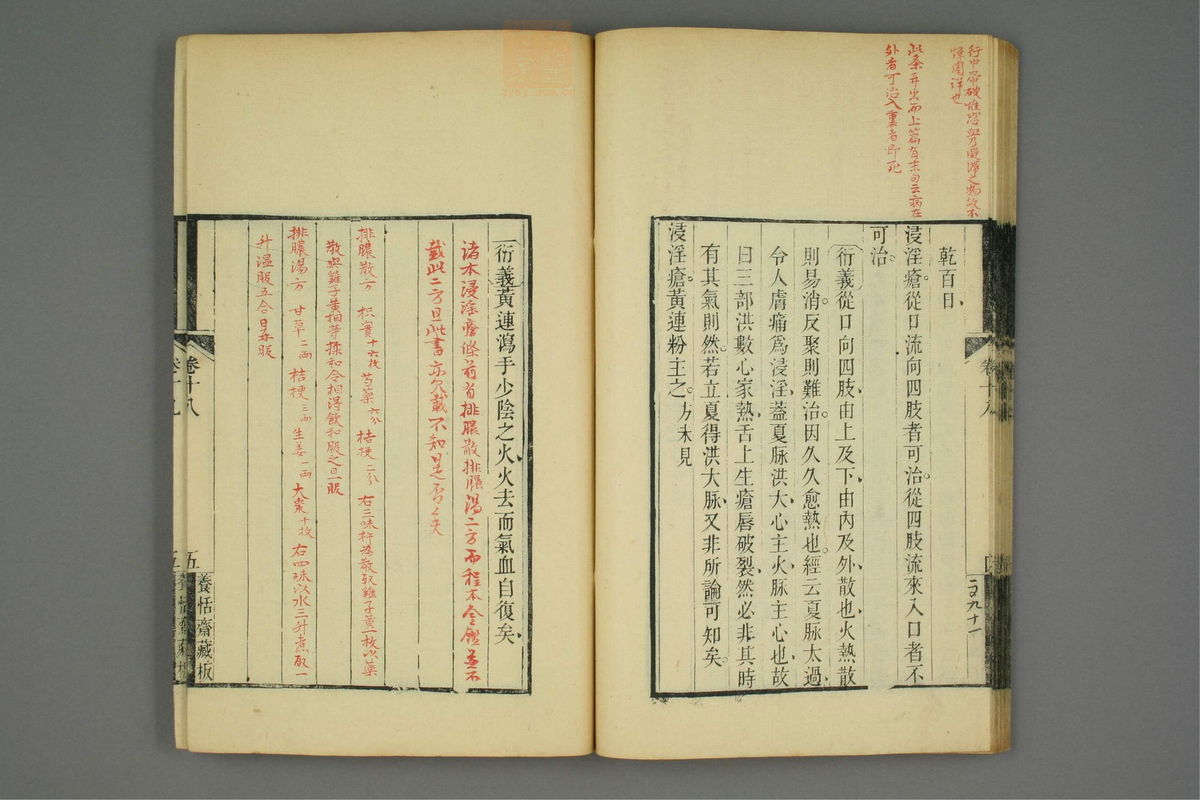 行中帶破惟恐血乃凝滯之病故不
卷十八
乾百日
浸淫瘡從口流向四肢者可治從四肢流來入口者不
可治
衍義從口向四肢由上及下由內及外散也火熱散
則易消反聚則難治因久久愈熱也經云夏脉太過
令人膚痛爲浸淫蓋夏脉洪大心主火脉主心也故
曰三部洪數心家熱舌上生瘡唇破裂然必非其時
有其氣則然若立夏得洪大脉又非所論可知矣
浸淫瘡黃連粉主之方未見
此条再出而上篇有末句云病在
外者可治入裏者即死
衍義黃連瀉手少陰之火火去而氣血自復矣
諸本浸淫瘡條前有排膿散排膿湯二方而程本金鑑並不
載此二方且此書亦欠載不知是否矣
排膿散方 枳實十六枚 芍藥六分 桔梗二分 右三味杵為散取雞子黃一枚以藥
散與雞子黃相等揉和令相得飲和服之日一服
排膿湯方 甘草二兩 桔梗三兩 生姜一兩 大棗十枚 右四味以水三升煮取一
升溫服五合日再服
卷十八
五
養恬齋藏板